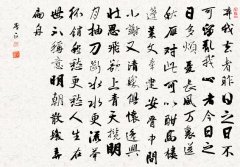 棄我去者昨日之日不
可留亂我心者今日之
日多煩憂長風萬里送
秋雁對此可以酣高樓
蓬萊文章建安骨中間
小謝又清發俱懷逸興
壯思飛欲上青天攬明
月抽刀斷水水更流舉
杯銷愁愁更愁人生在
世不稱意明朝散髮弄
扁舟